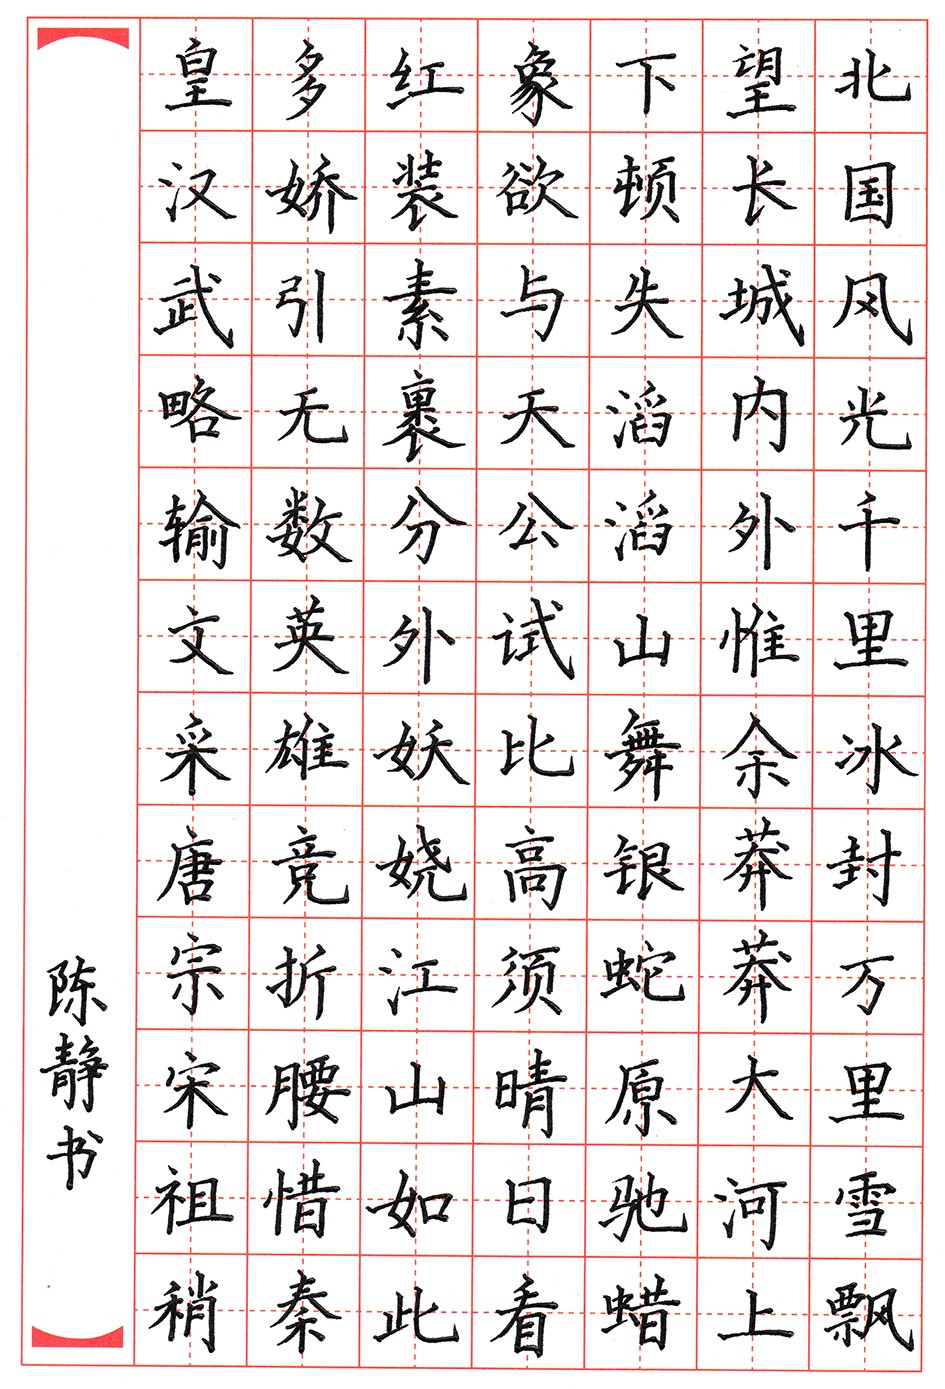 北国风光千里冰封万里雪飘
望长城内外惟余莽莽大河上
下顿失滔滔山舞银蛇原驰蜡
象欲与天公试比高须晴日看
红装素裹分外妖娆江山如此
多娇引无数英雄竞折腰惜秦
皇汉武略输文采唐宗宋祖稍
陈静书